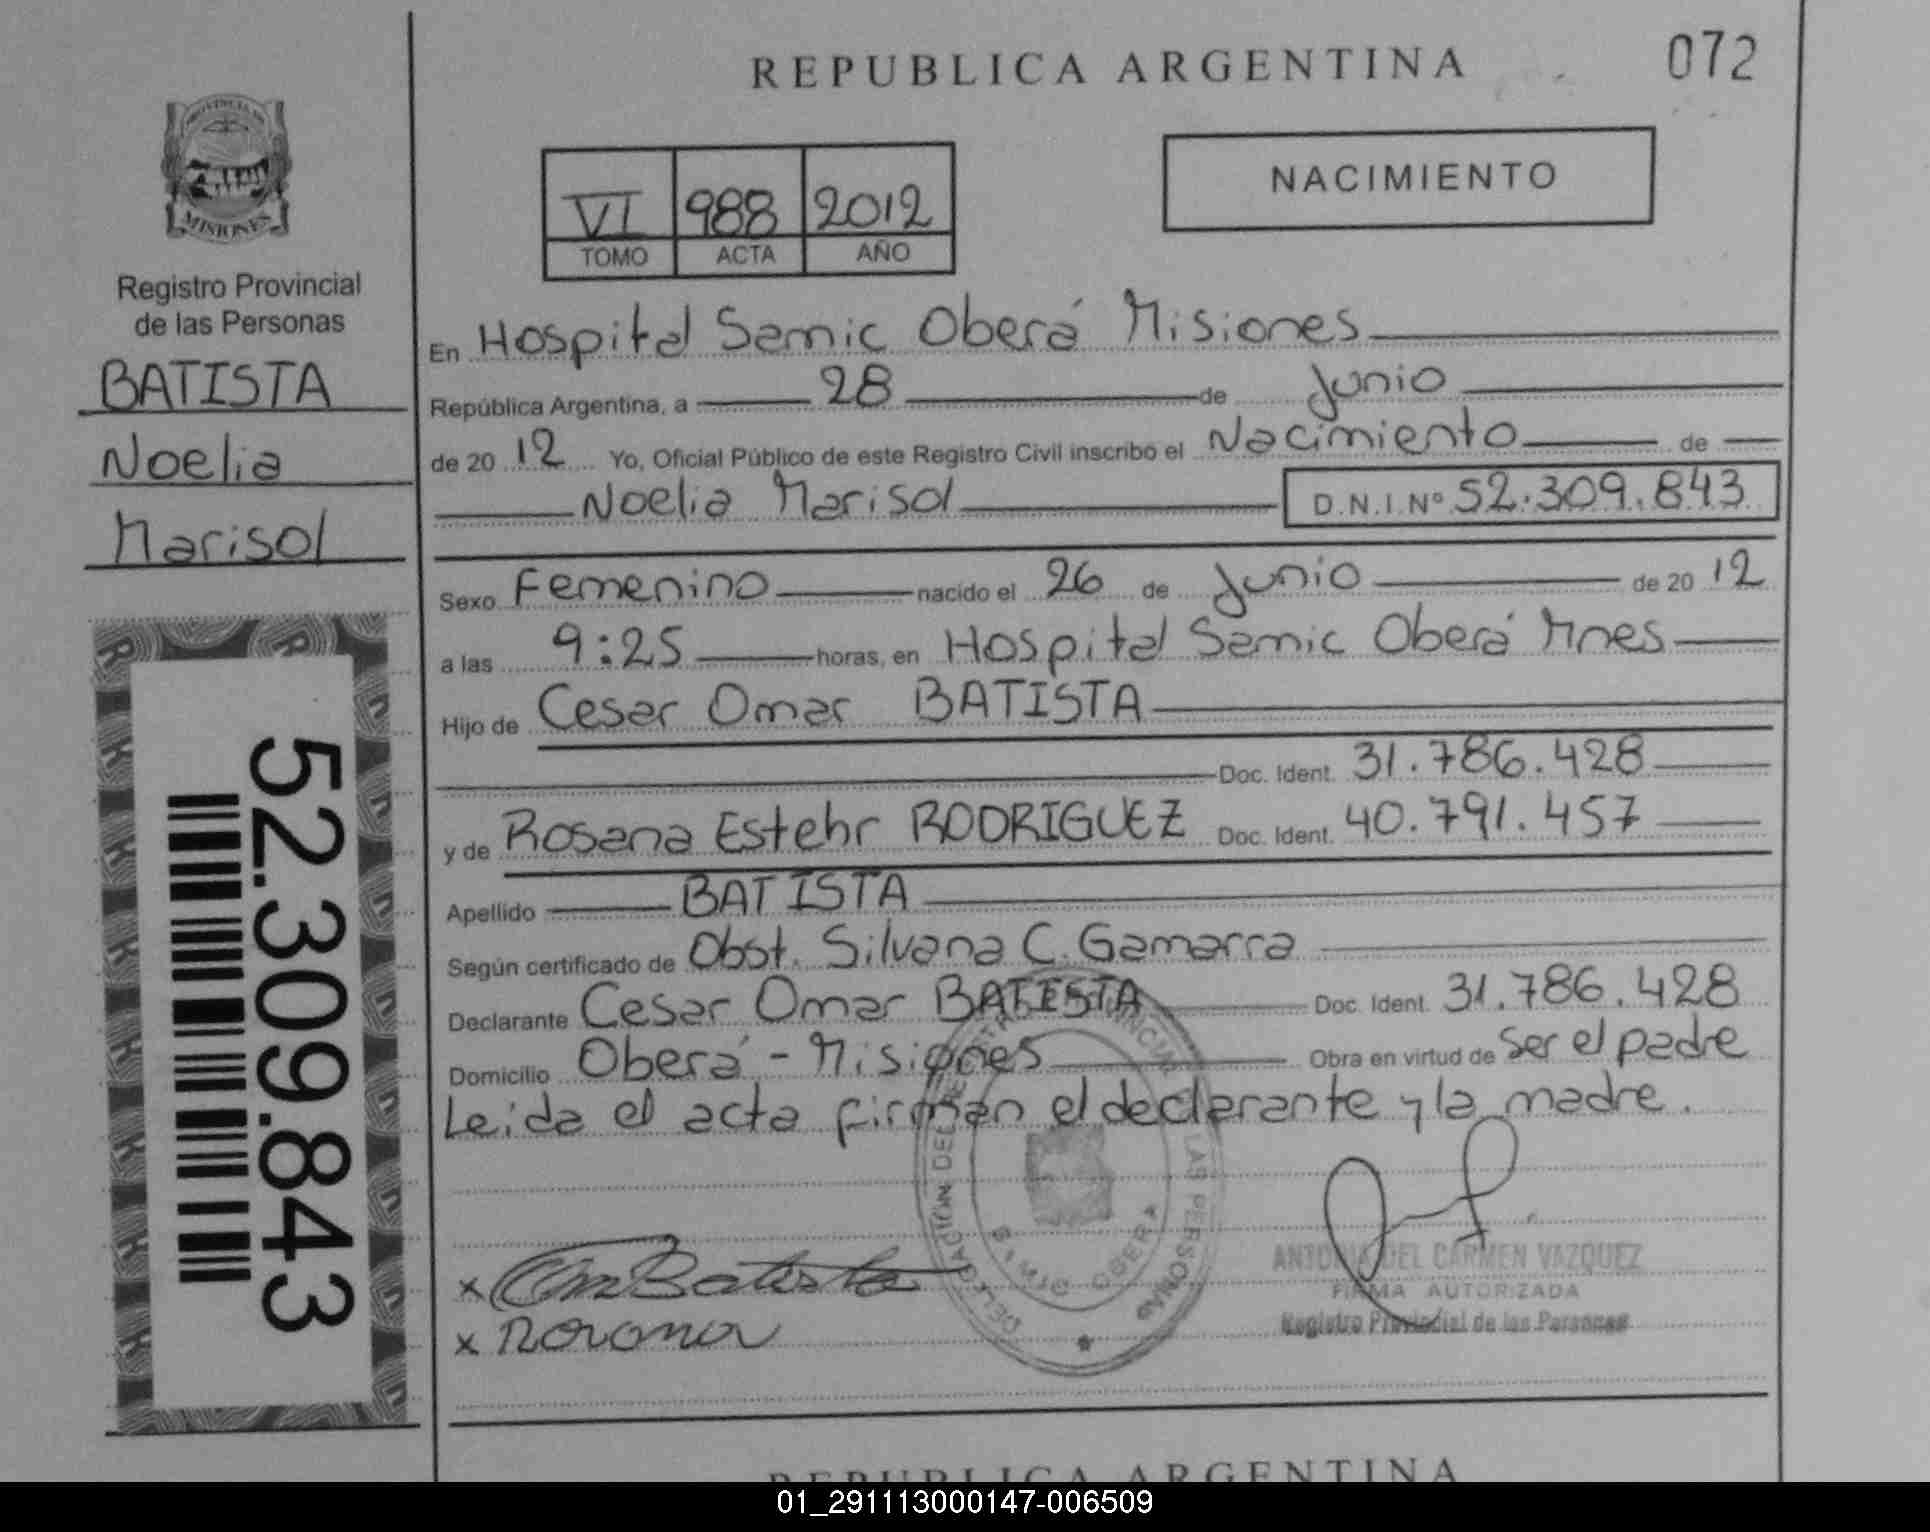 REPUBLICA ARGENTINA
072
PROVINCIA DE
MISIONES
Registro Provincial
de las Personas
BATISTA
Noelia
Marisol
52.309.843
VI 988 2012
TOMO ACTA AÑO
NACIMIENTO
En Hospital Samic Oberá Misiones
República Argentina, a 28 de Junio
de 20 12 Yo, Oficial Público de este Registro Civil inscribo el Nacimiento de
Noelia Marisol D.N.I. Nº 52.309.843
Sexo Femenino nacido el 26 de Junio de 20 12
a las 9:25 horas, en Hospital Samic Oberá Mnes
Hijo de Cesar Omar BATISTA
Doc. Ident. 31.786.428
y de Rosana Estehr RODRIGUEZ Doc. Ident. 40.791.457
Apellido BATISTA
Según certificado de Obst. Silvana C. Gamarra
Declarante Cesar Omar BATISTA Doc. Ident. 31.786.428
Domicilio Oberá - Misiones Obra en virtud de Ser el padre
Leida el acta firman el declarante y la madre.
DELEGACION DEL REGISTRO PROVINCIAL DE LAS PERSONAS
SAMIC OBERA
x Batista
x
ANTONIA DEL CARMEN VAZQUEZ
FIRMA AUTORIZADA
Registro Provincial de las Personas
REPUBLICA ARGENTINA
01_291113000147-006509